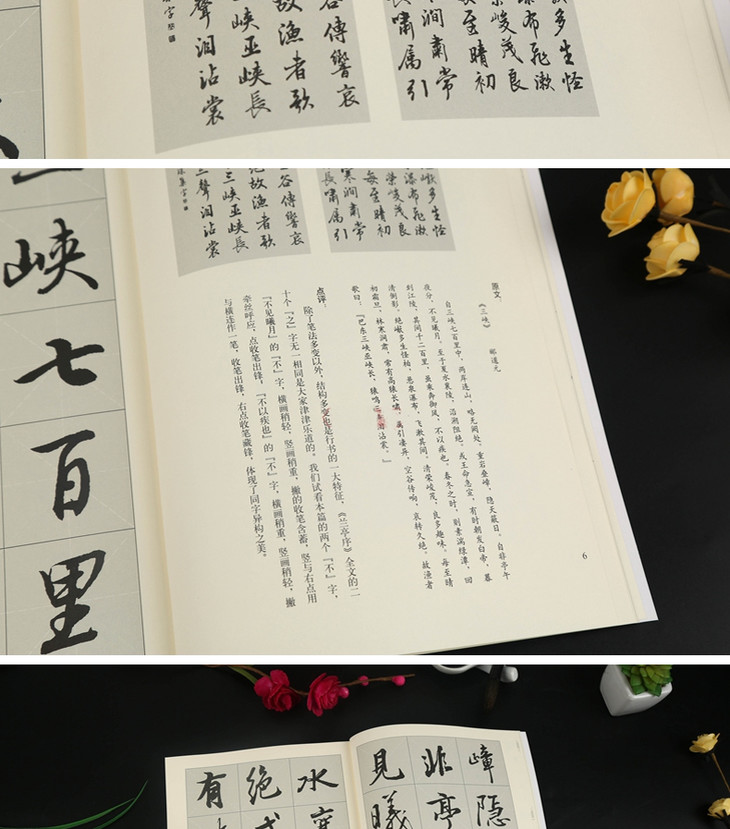 多生怪
布飛漱
峻茂良
至晴初
澗肅常
嘯属引
谷傳響哀
故漁者歌
峡巫峡長
聲泪沾裳
字
多生怪
瀑布飛漱
榮峻茂良
每至晴初
寒澗肅常
長嘯属引
谷傳響哀
故漁者歌
三峡巫峡長
聲泪沾裳
集字
原文：
《三峡》 郦道元
自三峡七百里中，两岸连山，略无阙处。重岩叠嶂，隐天蔽日。自非亭午
夜分，不见曦月。至于夏水襄陵，沿溯阻绝。或王命急宣，有时朝发白帝，暮
到江陵，其间千二百里，虽乘奔御风，不以疾也。春冬之时，则素湍绿潭，回
清倒影，绝巘多生怪柏，悬泉瀑布，飞漱其间，清荣峻茂，良多趣味。每至晴
初霜旦，林寒涧肃，常有高猿长啸，属引凄异，空谷传响，哀转久绝。故渔者
歌曰：“巴东三峡巫峡长，猿鸣三声泪沾裳。”
点评：
除了笔法多变以外，结构多变也是行书的一大特征，《兰亭序》全文的二
十个『之』字无一相同是大家津津乐道的。我们试看本篇的两个『不』字，
『不见曦月』的『不』字，横画稍轻，竖画稍重，撇的收笔含蓄，竖与右点用
牵丝呼应，点收笔出锋，『不以疾也』的『不』字，横画稍重，竖画稍轻，撇
与横连作一笔，收笔出锋，右点收笔藏锋，体现了同字异构之美。
6
峡
七
百
里
嶂隐
非亭
見曦
水襄
絶
有